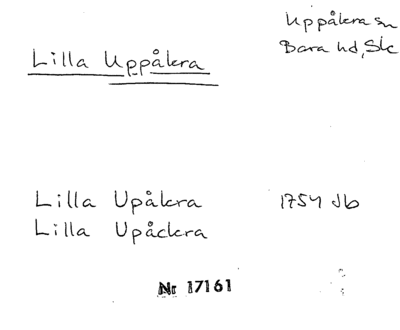 Uppåkra sn
Bara hd, Sk
Lilla Uppåkra
Lilla Upåkra 1754 Jb
Lilla Upåckra
Nr 17161